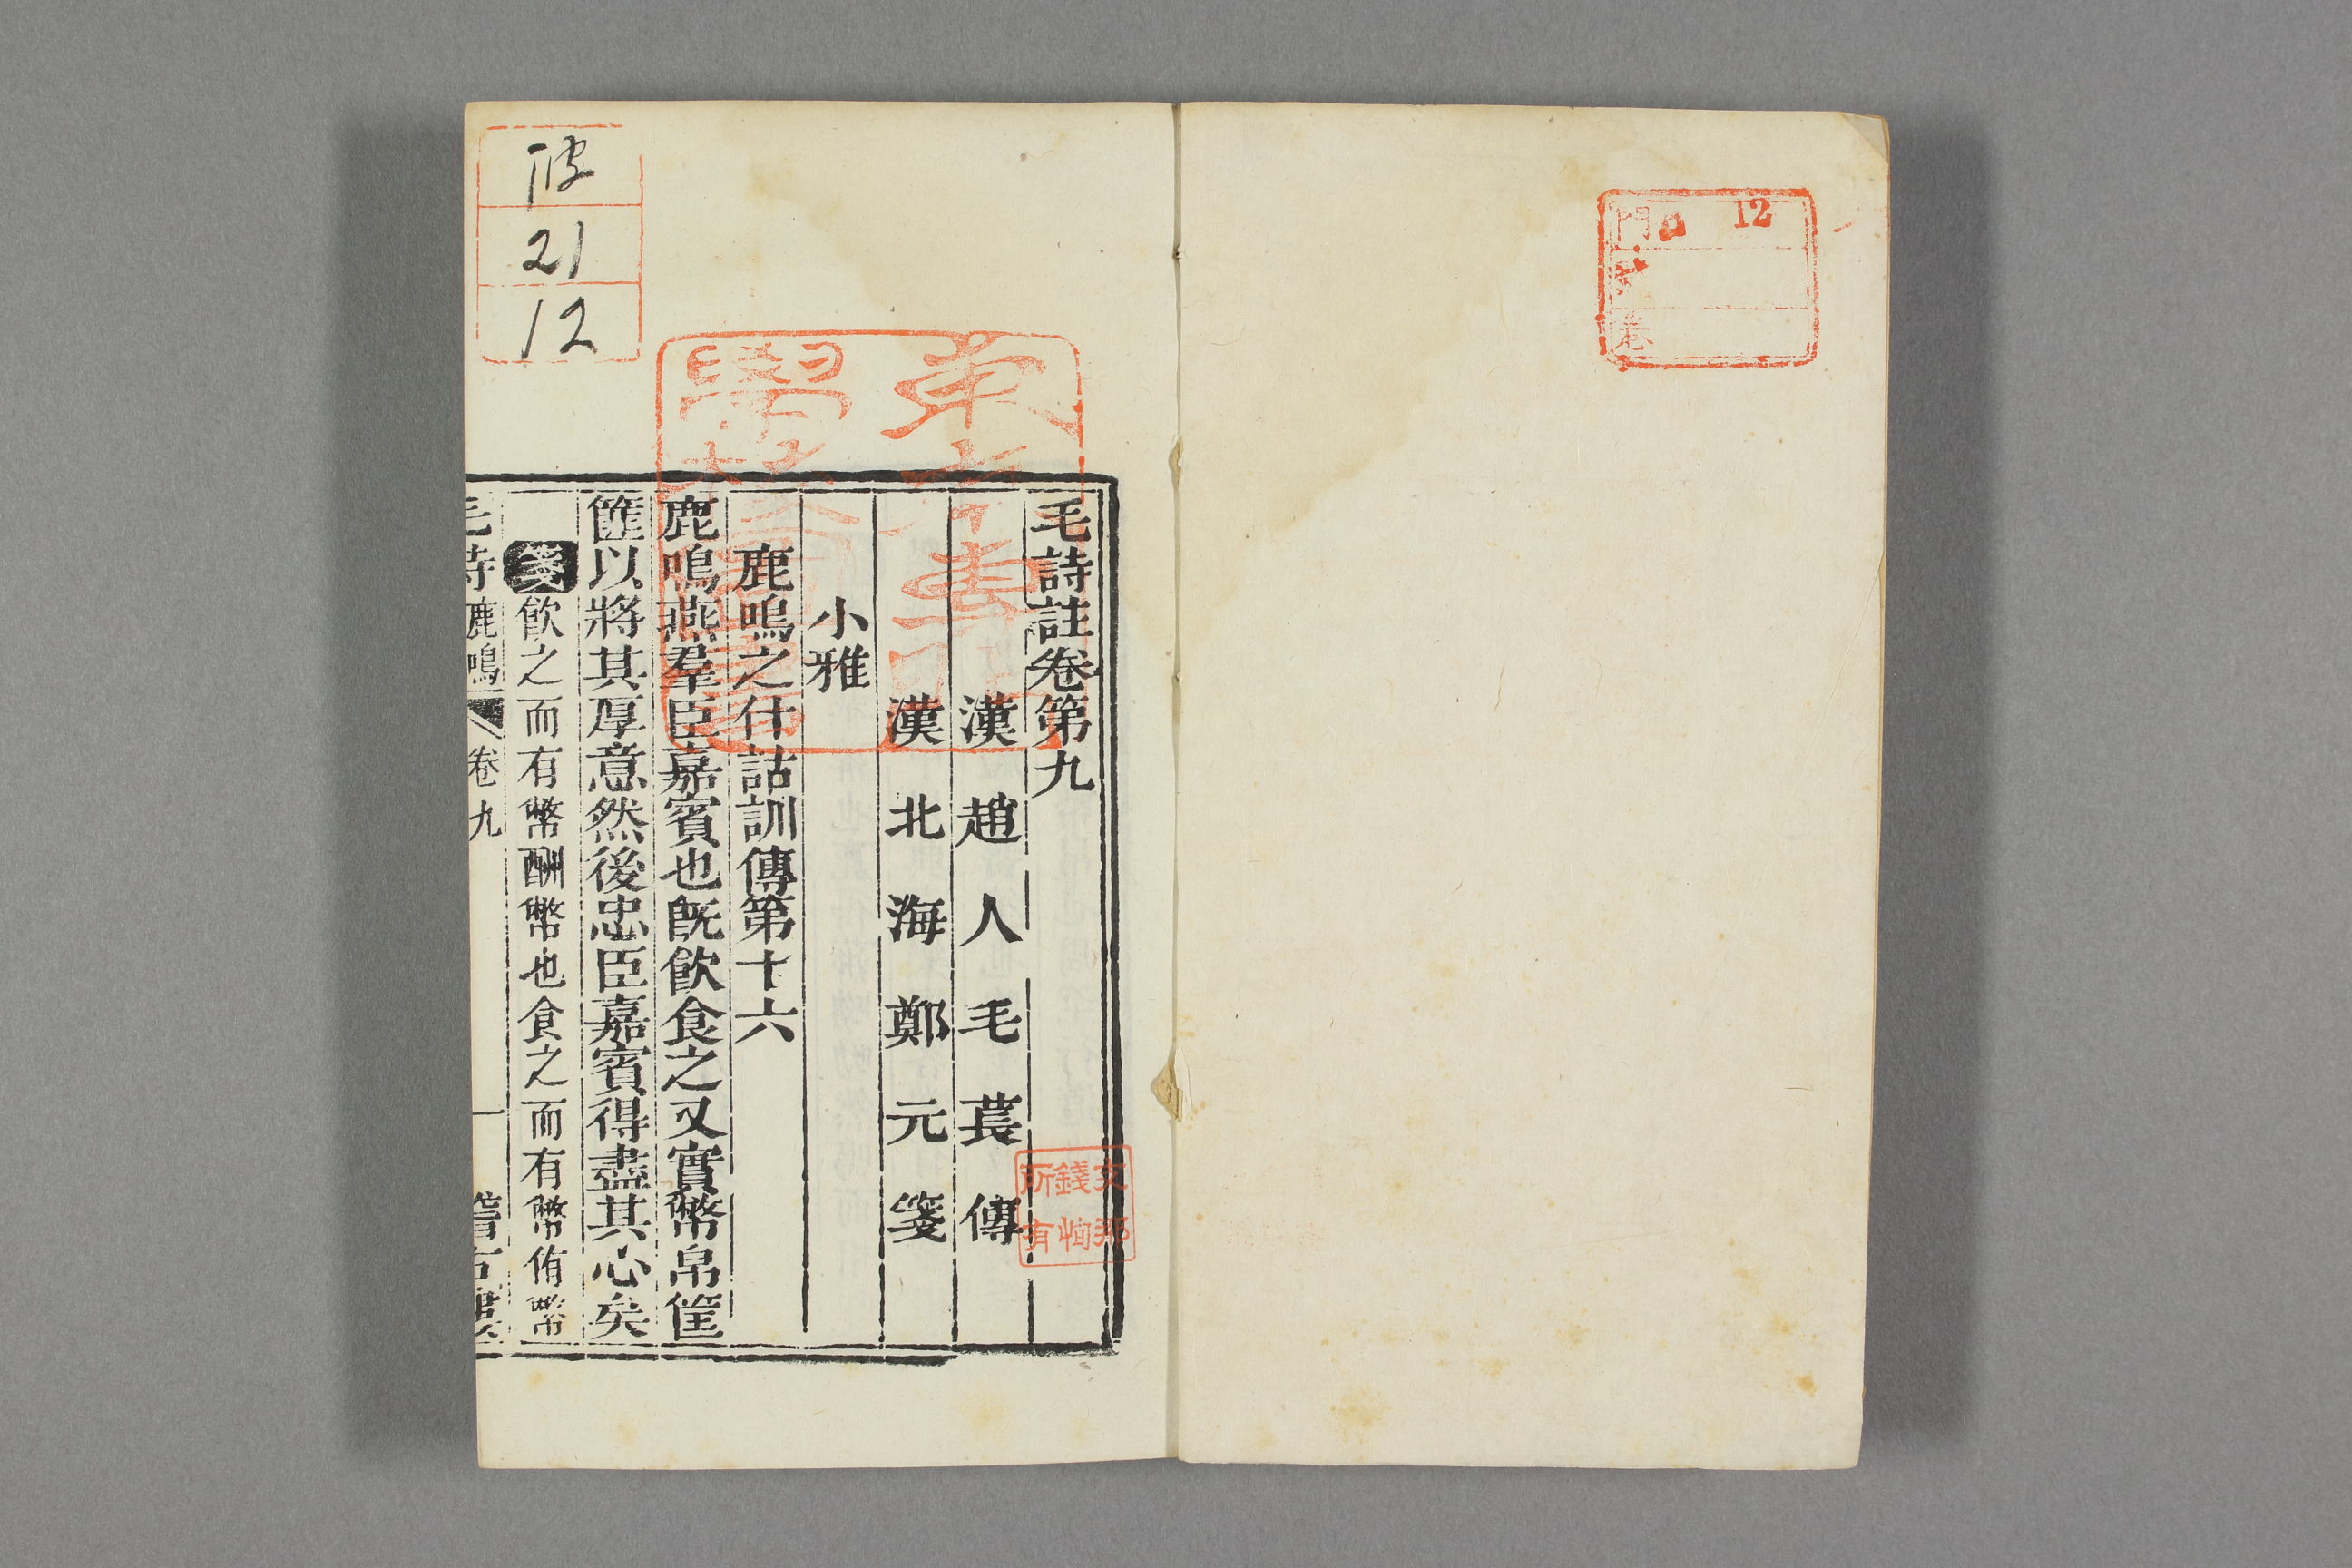 12
門
卷
毛詩註卷第九
漢趙人毛萇傳
漢北海鄭元箋
小雅
鹿鳴之什詁訓傳第十六
鹿鳴燕羣臣嘉賓也旣飮食之又實幣帛筐
篚以將其厚意然後忠臣嘉賓得盡其心矣
箋飮之而有幣酬幣也食之而有幣侑幣
毛詩鹿鳴 卷九 一 稽古樓
21
12
文那
錢恫
所有